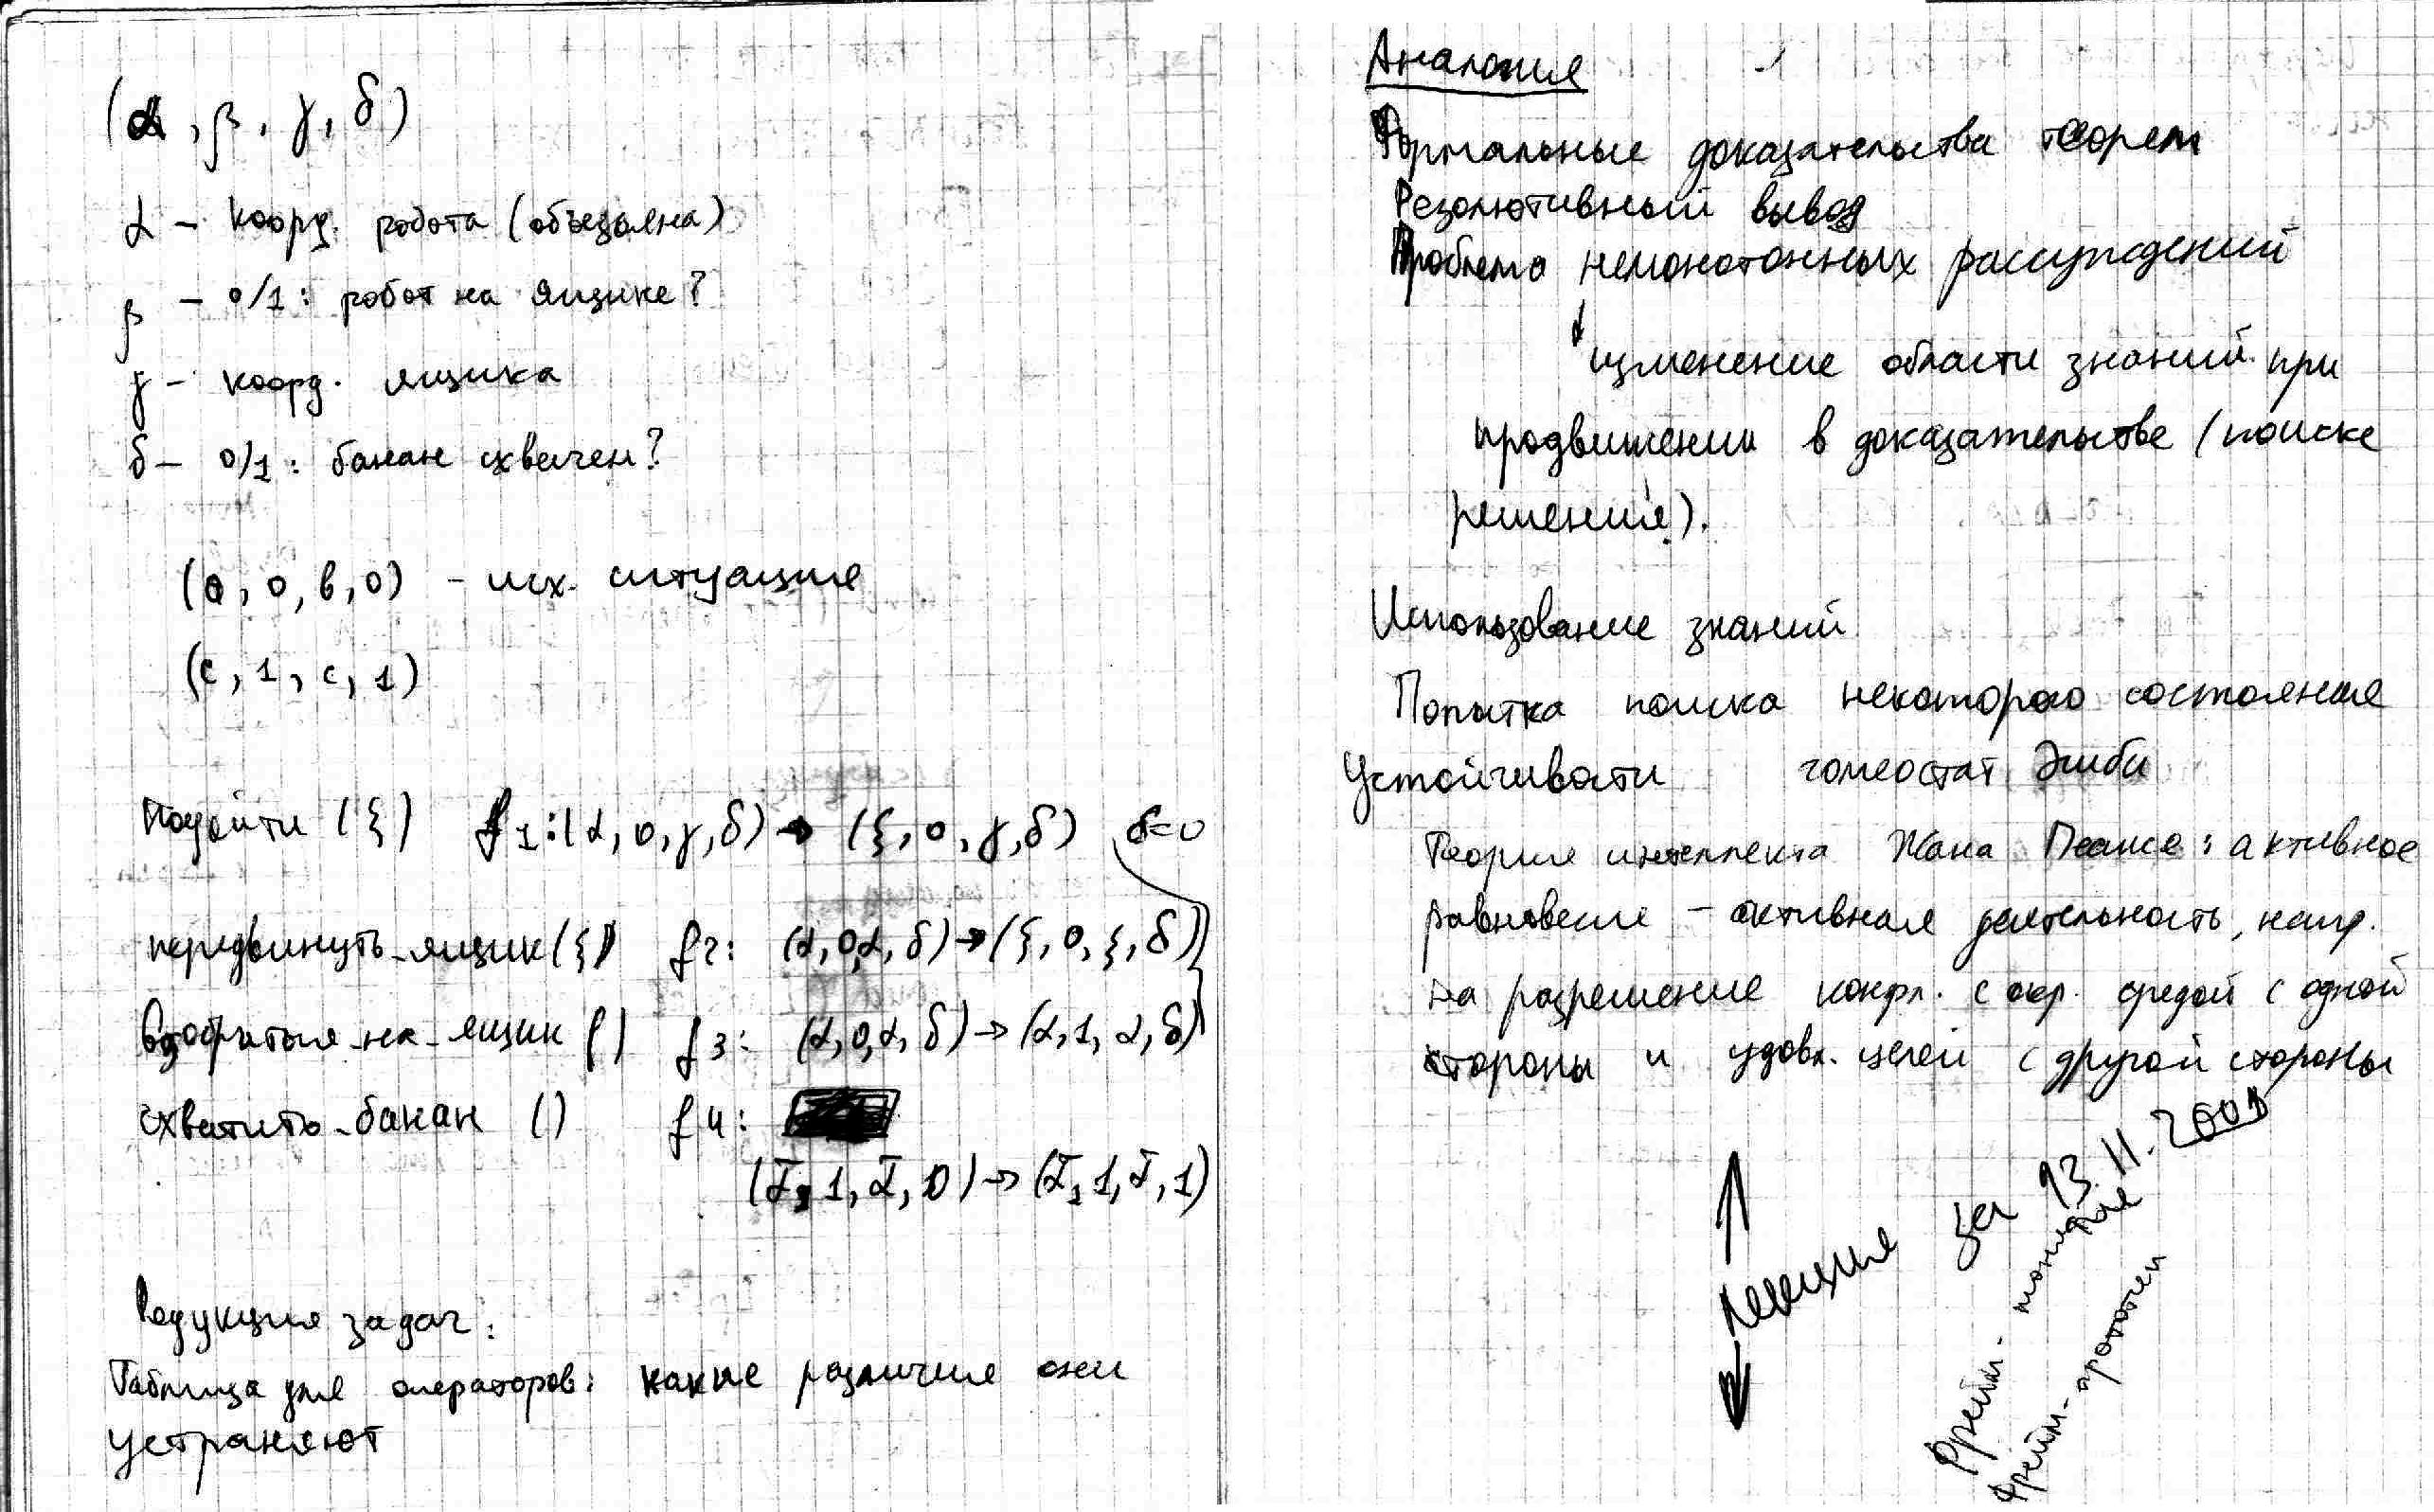 (α, β, γ, δ)
α – коорд. робота (обезьяна)
β – 0/1: робот на ящике?
γ – коорд. ящика
δ – 0/1: банан схвачен?
(a, 0, b, 0) – исх. ситуация
(c, 1, c, 1)
Подойти (ξ) f1: (α, 0, γ, δ) → (ξ, 0, γ, δ) δ=0
передвинуть-ящик (ξ) f2: (α, 0, α, δ) → (ξ, 0, ξ, δ)
взобраться-на-ящик () f3: (α, 0, α, δ) → (α, 1, α, δ)
схватить-банан () f4:
(ᾱ, 1, ᾱ, 0) → (ᾱ, 1, ᾱ, 1)
Редукция задач:
Таблица для операторов: какие различия они
устраняют
Аналогия
Формальные доказательства теорем
Резолютивный вывод
Проблема немонотонных рассуждений
↓
изменение области знаний при
продвижении в доказательстве (поиске
решения).
Использование знаний
Попытка поиска некоторого состояния
Устойчивости гомеостат Эшби
Теория интеллекта Жана Пеаже: активное
равновесие – активная деятельность, напр.
на разрешение конфл. с окр. средой с одной
стороны и удовл. целей с другой стороны
лекция за 13.11.2001
Фрейм-понятие
Фрейм-прототип